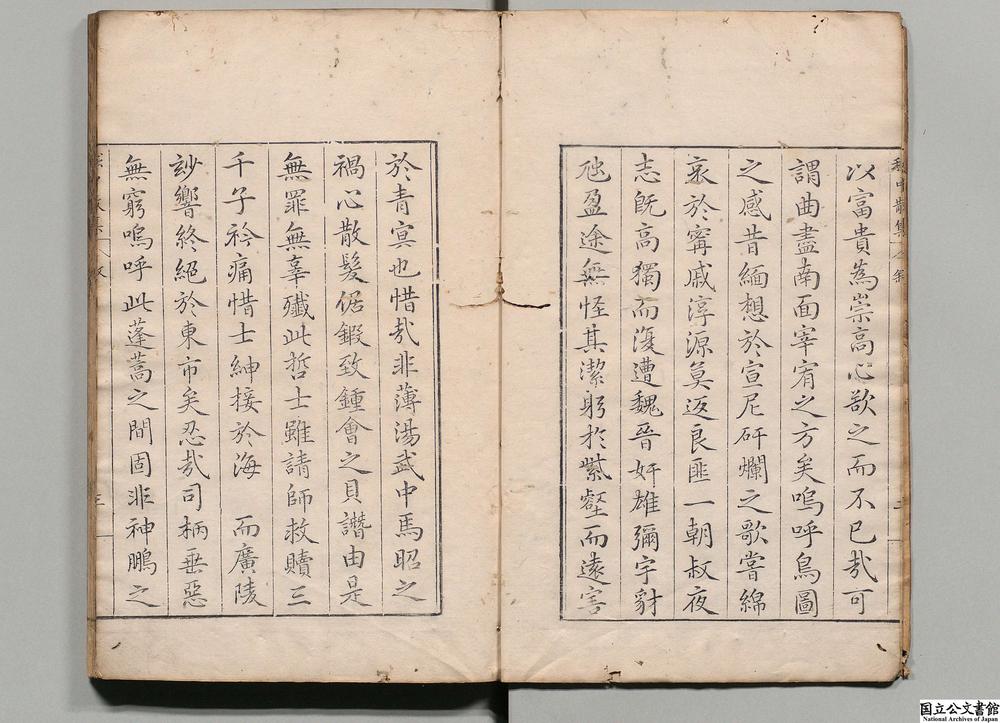 以富貴為崇高心欲之而不已㢤可
謂曲盡南面宰宥之方矣嗚呼鳥圖
之感昔緬想於宣尼矸爛之歌嘗綿
哀於甯戚淳源莫返良匪一朝叔夜
志既高獨而復遭魏晉奸雄彌宇豺
虺盈途無怪其潔躬於紫壑而遠害
於青冥也惜㢤非薄湯武中馬昭之
禍心散髮倨鍜致鍾會之貝譖由是
無罪無辜殲此哲士雖請師救贖三
千子衿痛惜士紳接於海　而廣陵
玅響終絕於東市矣忍㢤司柄垂惡
無窮嗚呼此蓬蒿之間固非神鵬之
嵇中散集
叙
三
国立公文書館
National Archives of Japan